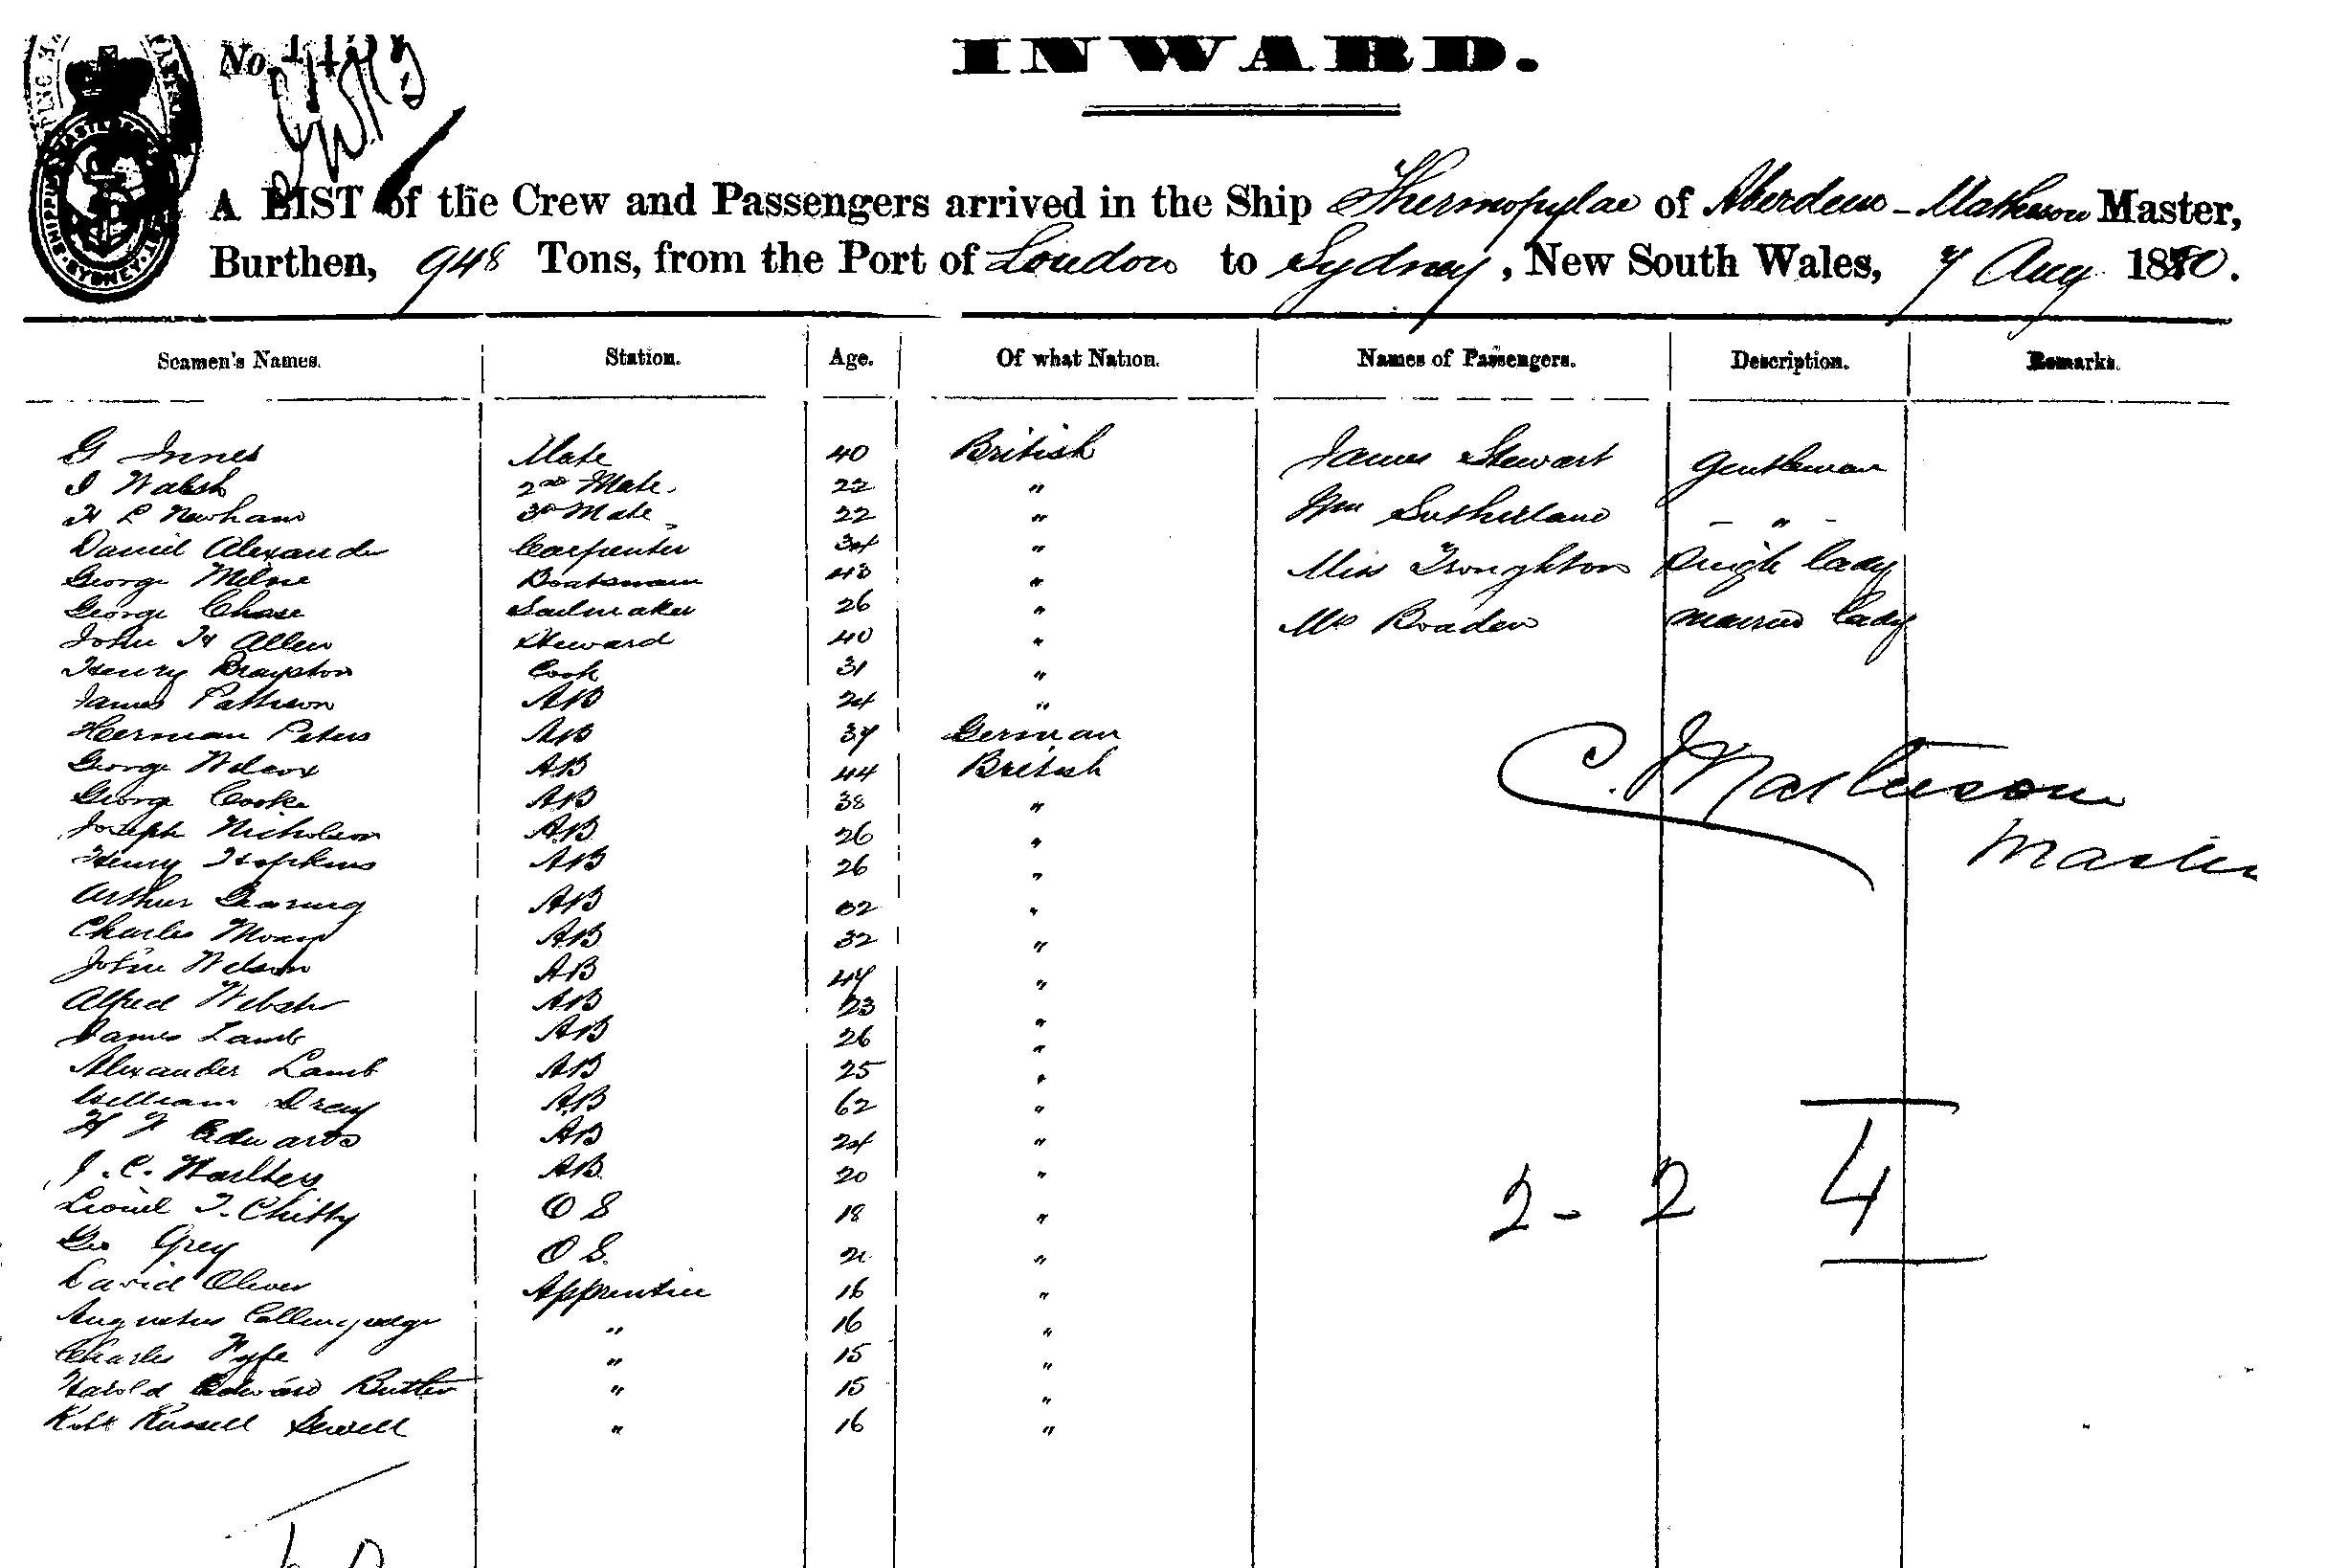 No.
INWARD.
A LIST of the Crew and Passengers arrived in the Ship Thermopylae of Aberdeen - Matheson Master,
Burthen, 948 Tons, from the Port of London to Sydney, New South Wales, 7 Aug 1880.
Seamen's Names. Station. Age. Of what Nation. Names of Passengers. Description. Remarks.
G Innes Mate 40 British James Stewart Gentleman
J Walsh 2nd Mate. 22 " Wm Sutherland - " -
H L Newham 3rd Mate 22 "
Daniel Alexander Carpenter 34 " Miss Troughton Single lady
George Milne Boatswain 48 "
George Chase Sailmaker 26 " Mrs Roaden married lady
John H Allen Steward 40 "
Henry Brayston Cook 31 "
James Pattison AB 24 "
Herman Peters AB 37 German
George Wilcox AB 44 British C. Matheson
George Cooke AB 38 "
Joseph Nicholson AB 26 " Master
Henry Hopkins AB 26 "
Arthur Gearing AB 32 "
Charles AB 32 "
John Wilson AB 47 "
Alfred Webster AB 23 "
James Lamb AB 26 "
Alexander Lamb AB 25 "
William Dray AB 62 "
H W Edwards AB 24 "
J. C. AB. 20 " 2 - 2 4
Lionel T. Chitty O S 18 "
Geo Grey O S. 21 "
David Oliver Apprentice 16 "
Augustus Collingridge " 16 "
Charles Fyfe " 15 "
Harold Edward Butler " 15 "
Robt Russell Sewell " 16 "